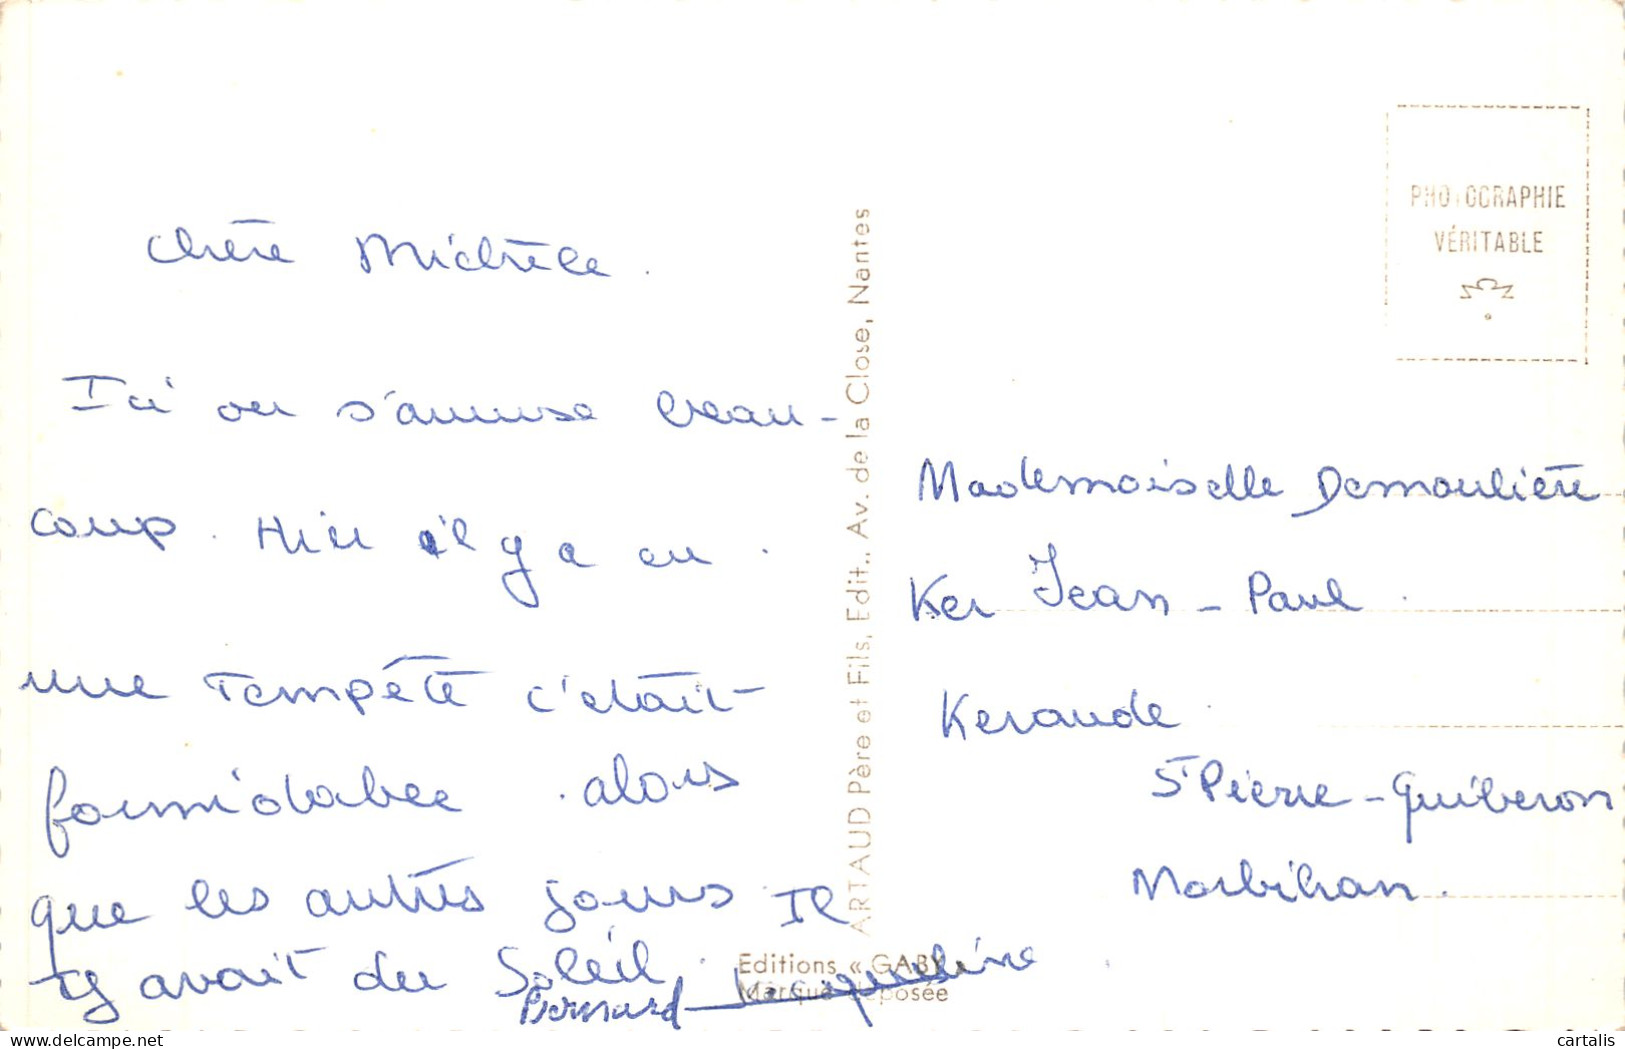 Chère Michèle.
Ici on s'amuse beau-
coup. Hier il y a eu.
une Tempête c'était
formidable alors
que les autres jours Il
y avait du Soleil.
Bernard Jacqueline
ARTAUD Père et Fils, Edit., Av. de la Close, Nantes
Editions « GABY »
Marque déposée
PHOTOGRAPHIE
VÉRITABLE
Mademoiselle Demoulière
Ker Jean-Paul.
Keraude
St Pierre-Quiberon
Morbihan.
cartalis